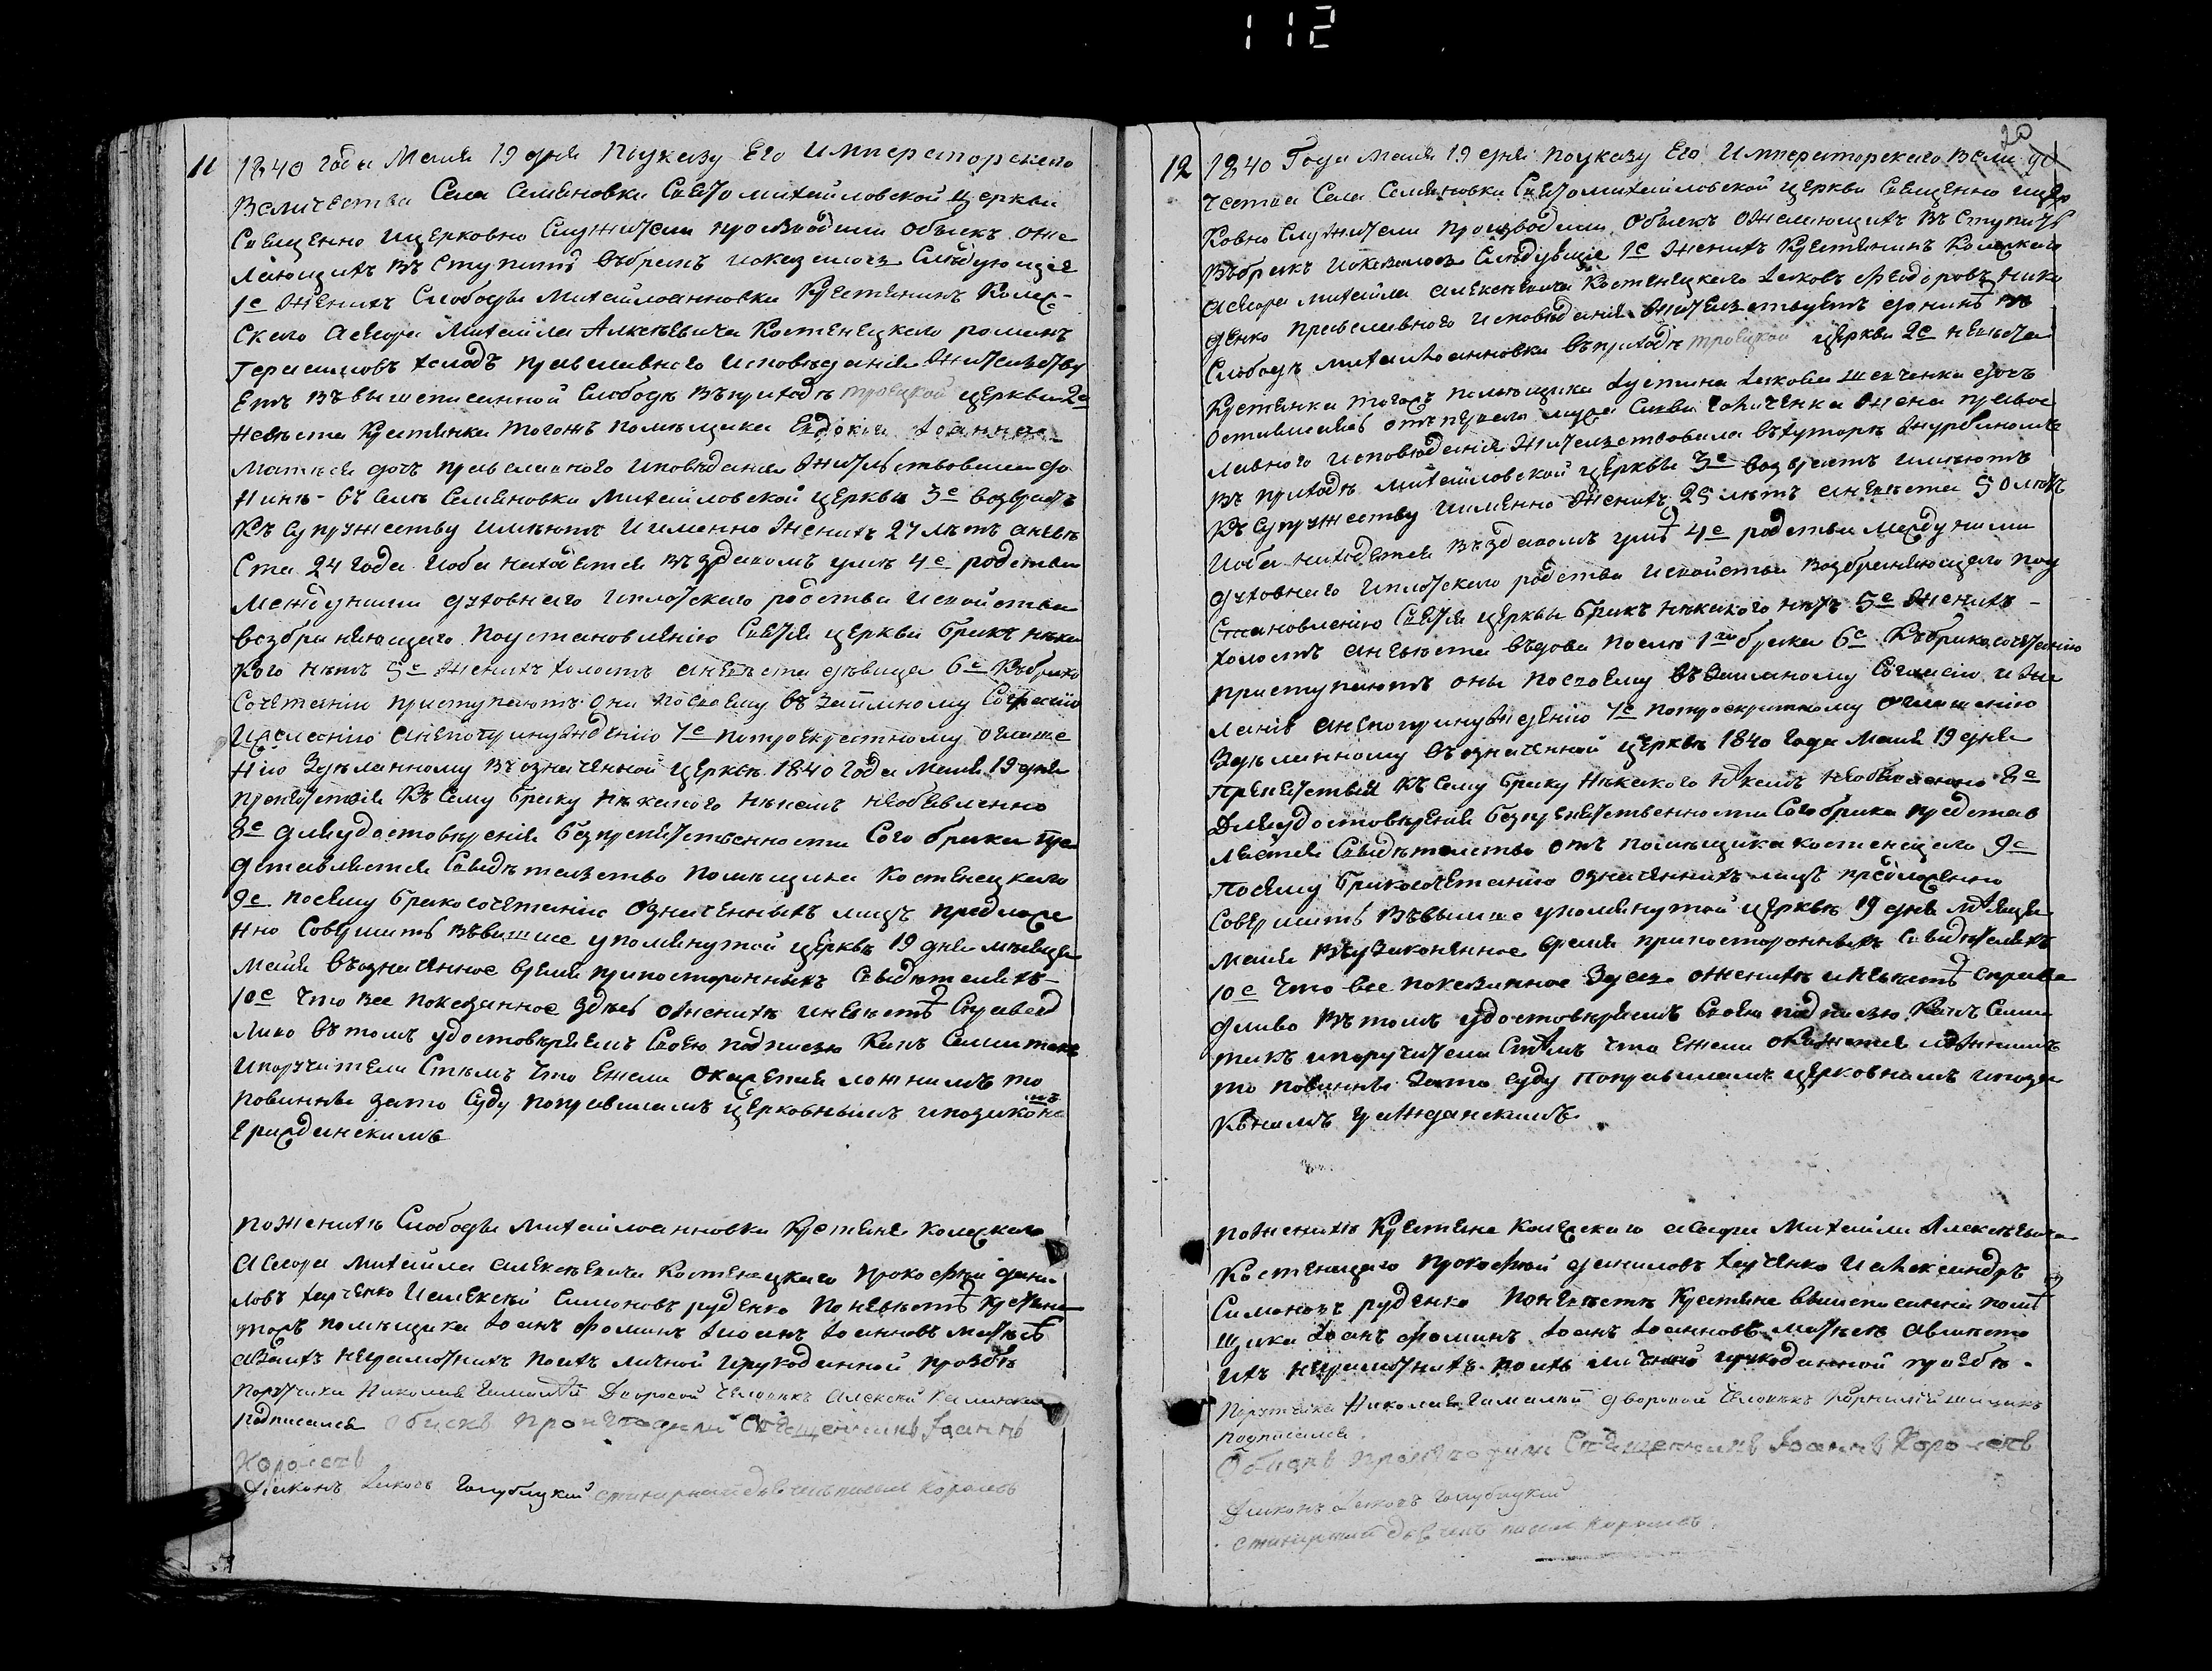 112
11
1840 года Маия 19 дня По указу Его Императорского
Величества Села Семеновки Свято михайловской Церкви
Священно и церковно Служители производили обыск о же
лающих в Ступить в брак и оказалось Следующее
1е Жених Слободы Михайлоанновки Крестьянин Колеж-
ского Асесора Михаила Алексеевича Костенецкого роман
Герасимов православного исповедания Жительству
Ет в вышеписанной Слободе в приходе троецкой церкви 2е
Невеста Крестьянка тогож помещика Евдокия Иоаннова
дочь православного исповедания Жительствовала до
Ныне - в селе Семеновки Михайловской церкви 3е возраст
К Супружеству имеют и именно Жених 27 лет а неве
Ста 24 года и оба находятся в здравом уме 4е родства
Между ними духовного и плотского родства и свойства
возбраняющего по установлению Святыя церкви брак ника
кого нет 5е Жених холост а невеста девица 6е К брако
Сочетанию приступают они по своему взаимному Согласию
И желанию а не по принуждению 7е по троекратному оглаше
нию Зделанному в означенной церкве 1840 года Маия 19 дня
препятствия к Сему браку никакого никем необъявленно
8е для удостоверения безпрепятственности Сего брака пре
дставляется Свидетельство помещика Костенецкого
9е посему бракосочетание означенных лиц предположе
нно Совершить в выше упомянутой церкве 19 дня месяца
Маия в означенное время при посторонних Свидетелях
10е что все показанное здесь о женихе и невесте Справед
ливо в том удостоверяем Своею подписью как Сами так
и поручители С тем что Ежели окажется ложным то
повинны за то Суду по правилам церковным и по закона
м
Гражданским
по женихе Слободы Михайлоанновки Крестьяне Колежского
Асесора Михаила Алексеевича Костенецкого Прокофий Дани-
лов Харченко и Алексей Симонов руденко По невесте Крестьяне
того ж помещика Иоан Фомин и Иоан Иоаннов
а за их неграмотних по их личной и рукоданной прозбе
поручика Николая Гамалей Дворовой Человек Алексей
подписался Обыск производили Священник Иоанн
Королев
Диакон Иаков Голубицкий
20
12
1840 Года маия 19 дня по указу Его Императорского Вели
чества Села Семеновки Свято михайловской церкви Священно и цер
Ковно Служители производили обыск о желающих в Ступить
В брак и оказалось Следующее 1е Жених Крестьянин Колежского
Асесора михайла алексеевича Костенецкого Иаков Федоров Нико
денко православного исповедания Жительствует до ныне в
Слободе михайлоанновки в приходе троецкой церкви 2е невеста
Крестьянка тогож помещика Иустина Иаковы Шевченка дочь
оставшаяся от первого мужа жена право
славного исповедания Жительствовала в хуторе
в приходе михайловской церкви 3е возраст имеют
К Супружеству именно Жених 25 лет а невеста 50 лет
и оба находятся в здравом уме 4е родства между ними
духовного и плотского родства и свойства возбраняющего по у
Становлению Святыя церкви брак никакого нет 5е Жених -
холост а невеста вдова после 1го брака 6е К бракосочетанию
приступают оны по своему взаимному Согласию и же
ланию а не по принуждению 7е по троекратному оглашению
Зделанному в означенной церкве 1840 года маия 19 дня
Препятствия к Сему браку никакого никем необъявленно 8е
Для удостоверения безпрепятственности Сего брака представ
ляется Свидетельство от помещика костенецкого 9е
посему бракосочетанию означенних лиц предположенно
Совершить в выше упомянутой церкве 19 дня месяца
маия в узаконенное время при посторонних Свидетелях
10е что все показанное Здесь о женихе и невесте Справе
дливо в том удостоверяем Своею подписью как Сами
так и поручители С тем что Ежели окажется ложним
то повинны за то суду по правилам церковным и по за
конам гражданским
по женихе Крестьяне Колежского асесора Михаила Алексеевича
Костенецкого прокофий данилов харченко и Александр
Симонов руденко По невесте Крестьяне вышеписанний поме
щика Иоан Фомин Иоан Иоаннов а вместо
их неграмотних по их личной и рукоданной прозбе.
Поручика Николая Гамалей дворовой Человек
подписался.
Обыск производили Священник Иоанн Королев
Диакон Иаков Голубицкий